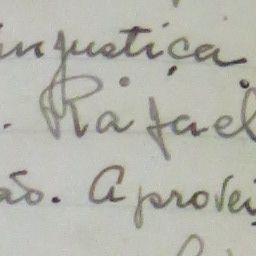 injustiça
. Rafael
ão. Aprovei